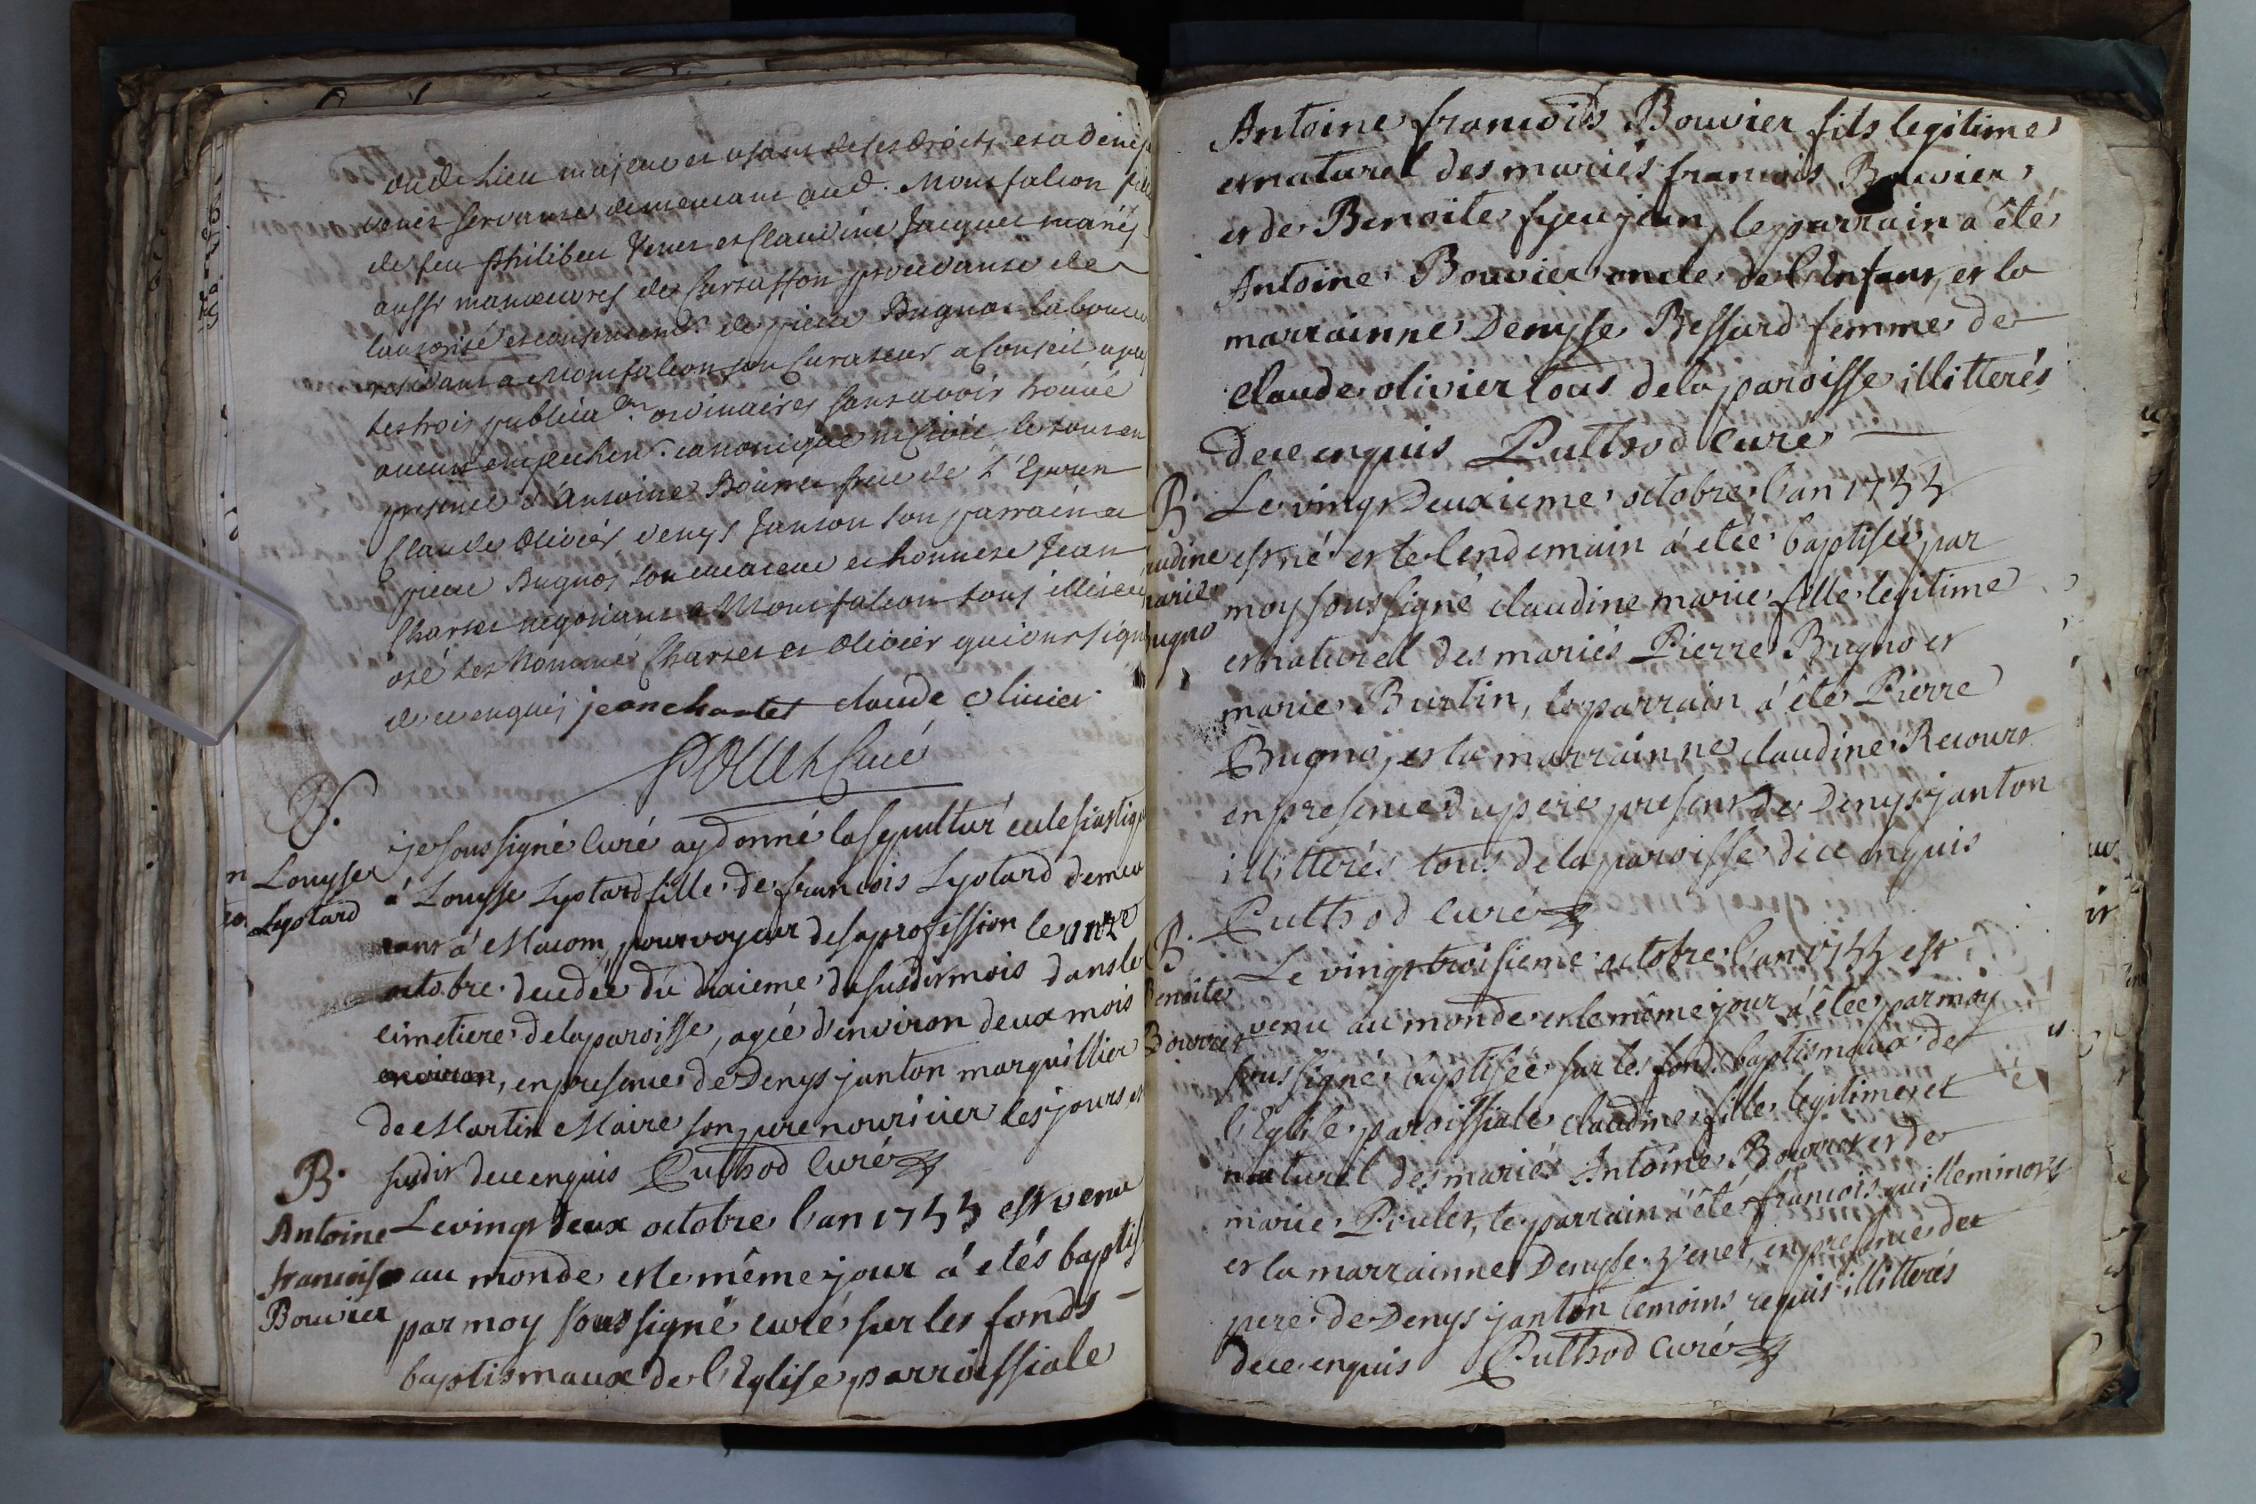 dud. Lieu majeur et usant de ses droits et a Denise
venet servante demeurant aud. Montfalcon fille
de feu philibert Venet et Claudine Jacquet mariés
aussi manœuvres de procedante de
l'autorisé et consentemt. de pierre Bugnot laboureur
residant a Montfalcon son Curateur a Conseil apres
les trois publicaon. ordinaires sans avoir trouvé
aucun empechemt. canonique ni civil le tout en
presence d'Antoine Bouvier frere de l'Epoux
Claude Olivier denys Janton son parrain et
pierre Bugnot son curateur et honnete Jean
Chartet negotiant a Montfalcon tous illiterés
oté les nommés Chartet et Olivier qui ont signé
de ce enquis jean chartet claude olivier
curé
S.
Louyse
Lyotard
je sous signé Curé ay donné la sepulture eclesiastique
á Louyse Lyotard fille de francois Lyotard demeu
rant á Macon, pourvoyeur de sa profession le onze
octobre decedée du dixieme du susdit mois dans le
cimetiere de la paroisse, agée d'environ deux mois
environ, en presence de Denys janton marguillier
de Martin Maire son pere nouricier les jours, et
susdit de ce enquis Puthod Curé
B.
Antoine
francoise
Bouvier
Le vingt deux octobre l'an 1744 est venu
au monde et le même jour á etés baptis
par moy sous signé curé sur les fonds
baptismaux de l'Eglise parroissiale
Antoine francois Bouvier fils legitime
et naturel des mariés francois Bouvier
et de Benoite le parrain a été
Antoine Bouvier oncle de l'Enfant, et la
marrainne Denyse Bessard femme de
Claude olivier tous de la paroisse illitterés
De ce enquis Puthod Curé
B.
audine
marie
Bugno
Le vingt Deuxieme octobre l'an 1744
est né et le lendemain á etée baptisée par
moy sous signé claudine marie fille legitime
et naturel des mariés Pierre Bugno et
marie Burtin, le parrain á été Pierre
Bugno, et la marrainne claudine Recourt
en presence du pere present de Denys janton
illitterés tous de la paroisse de ce enquis
Puthod Curé
B.
Benoite
Bouvier
Le vingt troisieme octobre l'an 1744 est
venu au monde et le même jour á êtée par moy
sous signé baptisée sur les fonds baptismaux de
l'Eglise paroissiale claudine fille legitime et
naturel des mariés Antoine Bouvier et de
marie Piulet, le parrain á été francois guilleminot
et la marrainne Denyse Venet, en presence de
pere de Denys janton temoins requis illitterés
de ce enquis Puthod Curé